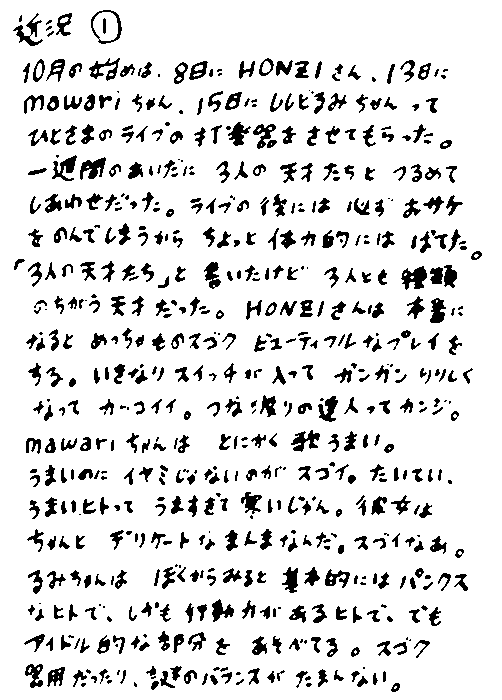 近況 ①
10月の始めは、8日に HONZIさん、13日に
mawariちゃん、15日に ししどるみちゃん って
ひとさまのライブの打楽器をさせてもらった。
一週間のあいだに 3人の天才たちと つるめて
しあわせだった。ライブの後には 必ず おサケ
をのんでしまうから ちょっと体力的には ばてた。
「3人の天才たち」と書いたけど 3人とも 種類
のちがう天才だった。HONZIさんは 本番に
なると めっちゃものスゴク ビューティフルなプレイを
する。いきなりスイッチが入って ガンガン りりしく
なって カッコイイ。つな渡りの達人ってカンジ。
mawariちゃんは とにかく歌うまい。
うまいのに イヤミじゃないのが スゴイ。たいてい、
うまいヒトって うますぎて寒いじゃん。彼女は
ちゃんと デリケートな まんまなんだ。スゴイなあ。
るみちゃんは ぼくからみると 基本的には パンクス
なヒトで、しかも 行動力があるヒトで、でも
アイドル的な部分を あそべてる。スゴク
器用だったり、のバランスが たまんない。